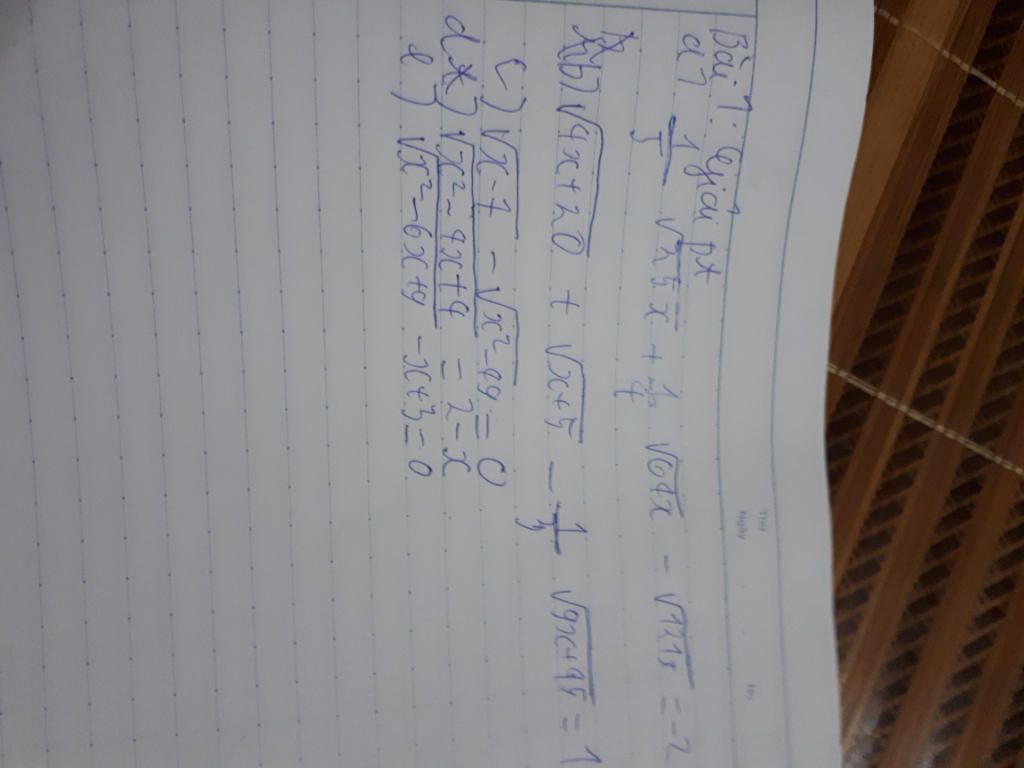 Bài 1: Giải pt
a) 1/5 √25x + 1/4 √64x - √121x = -2
b) √4x+20 + √x+5 - 1/3 √9x+45 = 1
c) √x-7 - √x²-49 = 0
d) √x²-4x+4 = 2-x
e) √x²-6x+9 -x+3=0
Thứ
Ngày